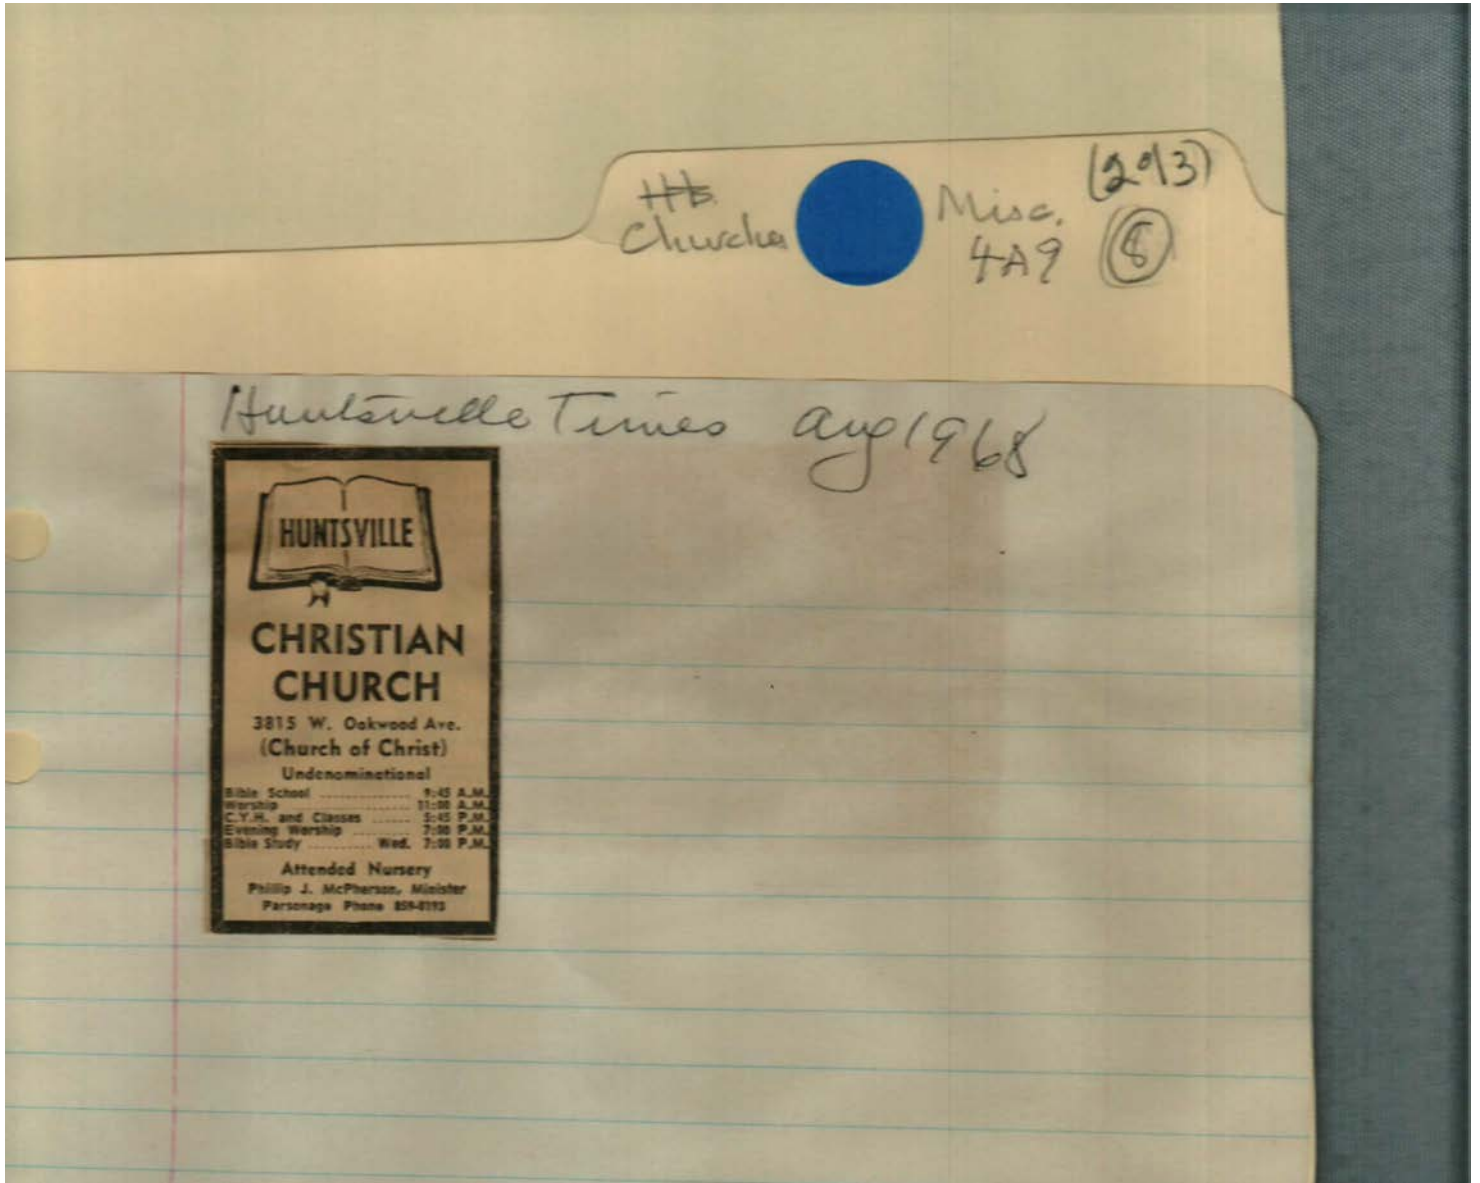 (2 of 3)
Churches Misc.
4A9 8
Huntsville Times Aug 1968
HUNTSVILLE
CHRISTIAN
CHURCH
3815 W. Oakwood Ave.
(Church of Christ)
Undenominational
Bible School .............. 9:45 A.M.
Worship .............. 11:00 A.M.
C.Y.H. and Classes ...... 5:45 P.M.
Evening Worship ........ 7:00 P.M.
Bible Study .......... Wed. 7:00 P.M.
Attended Nursery
Phillip J. McPherson, Minister
Parsonage Phone